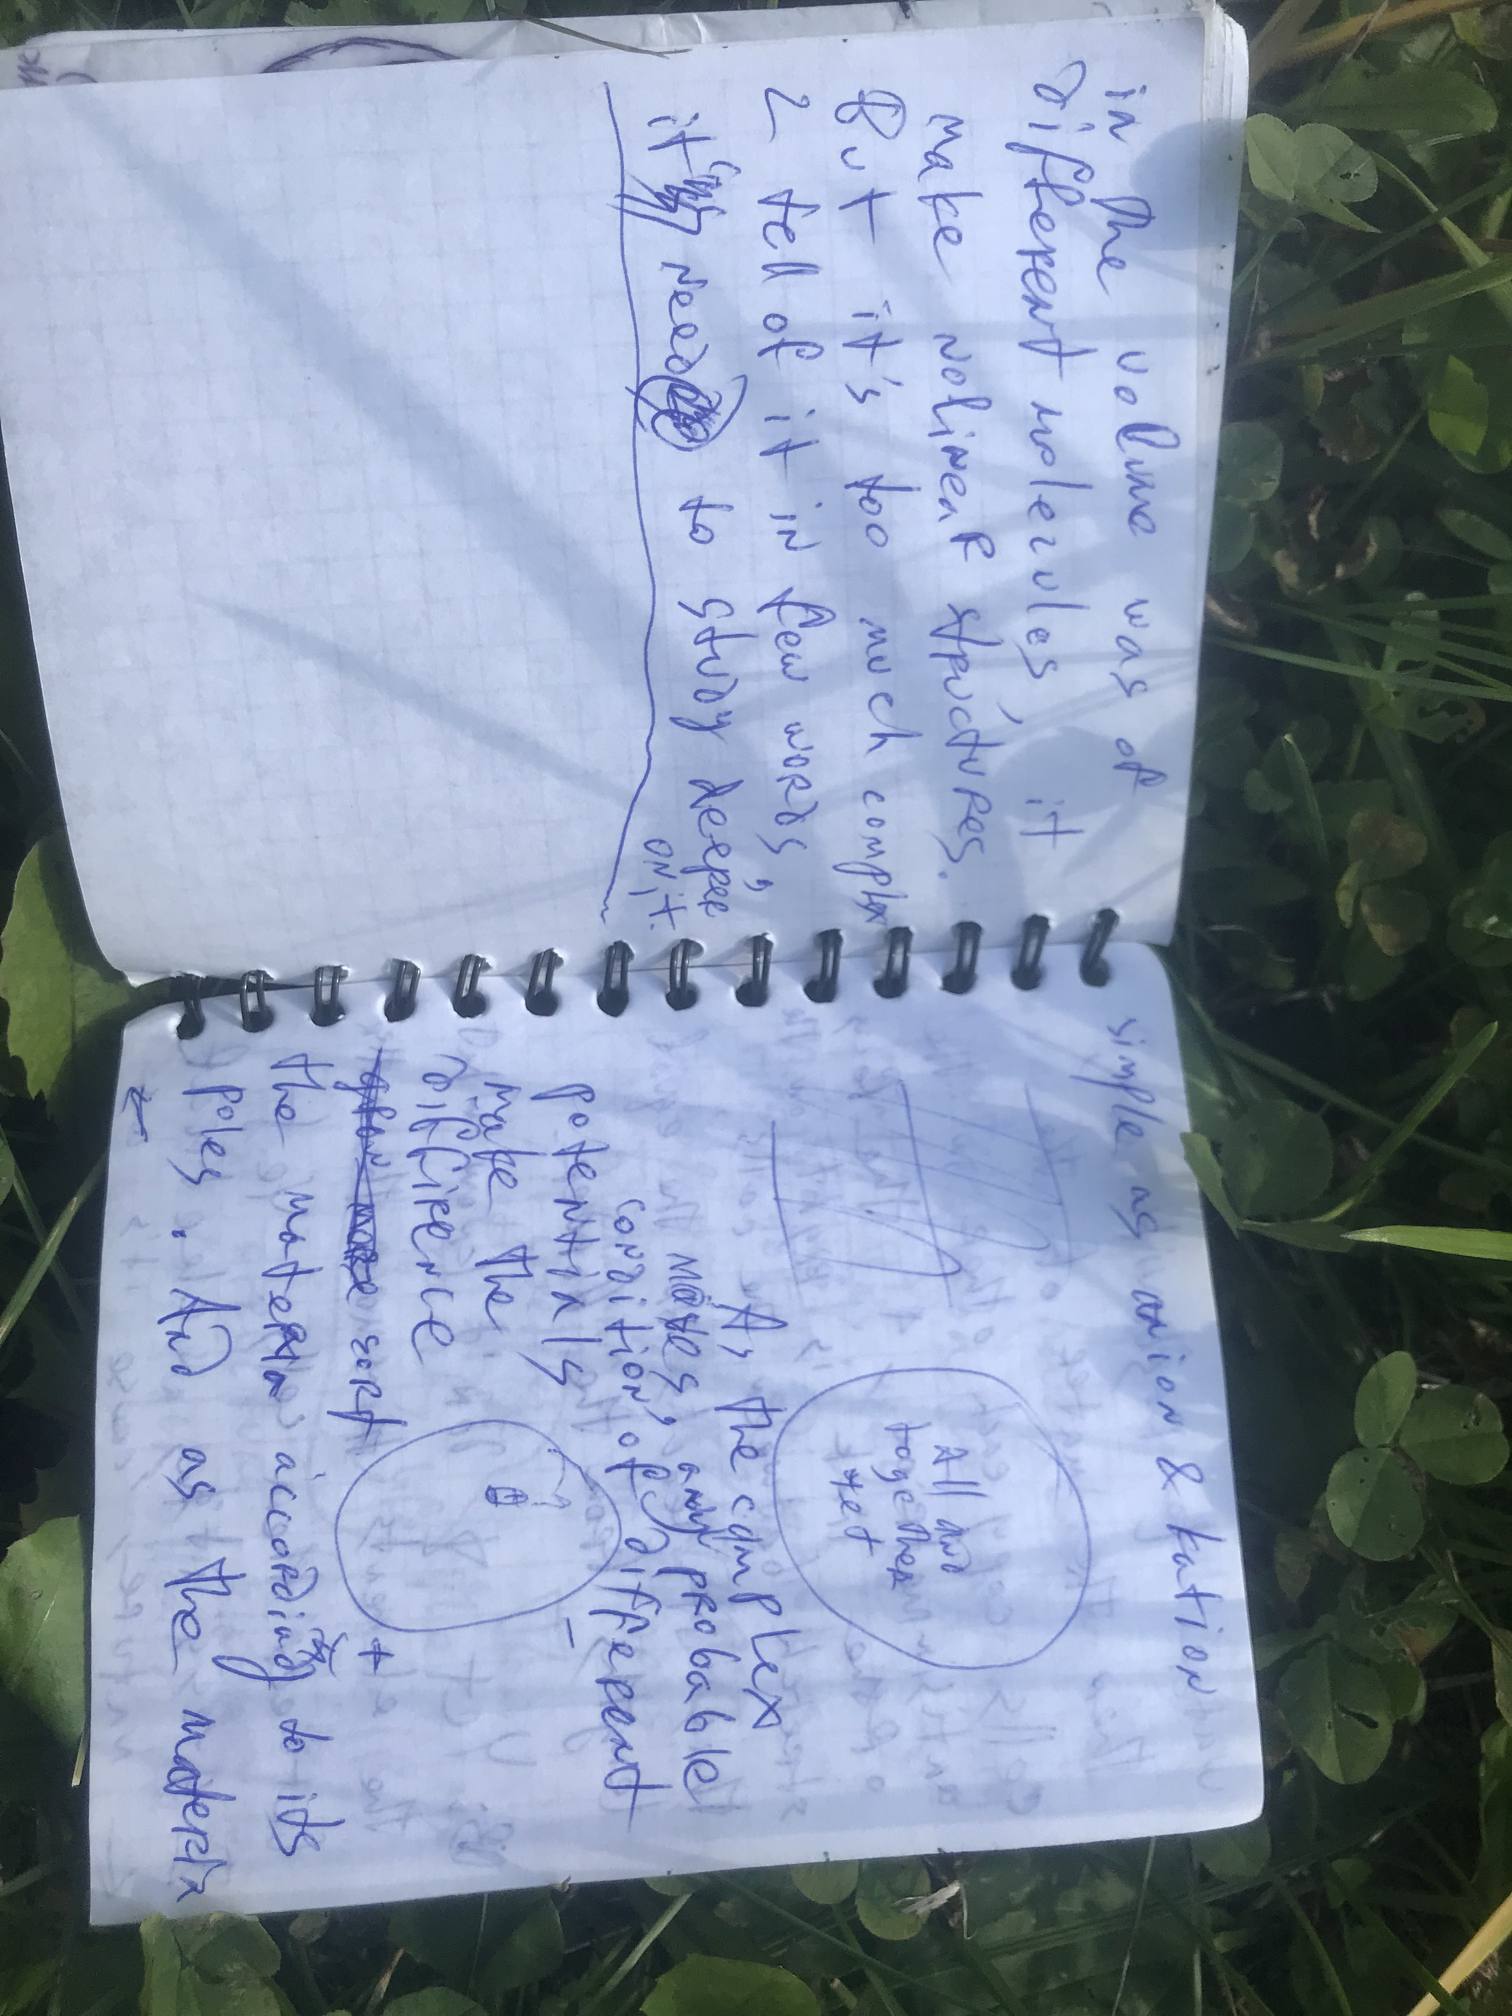 in the volume was of
different molecules, it
make nolinear structures.
But it's too much complex
2 tell of it in few words,
it need to study deeper
on it
simple as anion & kation
All and
together
yet
As the complex
moves, any probable
condition, of different
potentials
make the
diffirence
sort
the materia according to its
poles. And as the materia
+
-